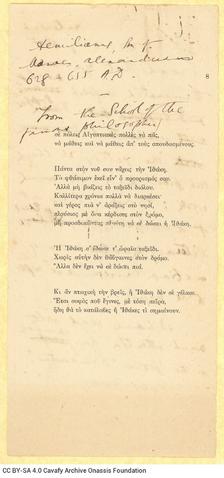 Aemilianus, M
Monae, Alexandrian
628 - 655 A.D.
8
From the School of the
famous philosopher
σὲ πόλεις Αἰγυπτιακὲς πολλὲς νὰ πᾷς,
νὰ μάθεις καὶ νὰ μάθεις ἀπ' τοὺς σπουδασμένους.
Πάντα στὸν νοῦ σου νἄχεις τὴν Ἰθάκη.
Τὸ φθάσιμον ἐκεῖ εἶν' ὁ προορισμός σου.
Ἀλλὰ μὴ βιάζεις τὸ ταξεῖδι διόλου.
Καλλίτερα χρόνια πολλὰ νὰ διαρκέσει·
καὶ γέρος πιὰ ν' ἀράξεις στὸ νησί,
πλούσιος μὲ ὅσα κέρδισες στὸν δρόμο,
μὴ προσδοκῶντας πλούτη νὰ σὲ δώσει ἡ Ἰθάκη.
Ἡ Ἰθάκη σ' ἔδωσε τ' ὡραῖο ταξεῖδι.
Χωρὶς αὐτὴν δὲν θἄβγαινες στὸν δρόμο.
Ἄλλα δὲν ἔχει νὰ σὲ δώσει πιά.
Κι ἂν πτωχικὴ τὴν βρεῖς, ἡ Ἰθάκη δὲν σὲ γέλασε.
Ἔτσι σοφὸς ποὺ ἔγινες, μὲ τόση πεῖρα,
ἤδη θὰ τὸ κατάλαβες ἡ Ἰθάκες τί σημαίνουν.
CC BY-SA 4.0 Cavafy Archive Onassis Foundation